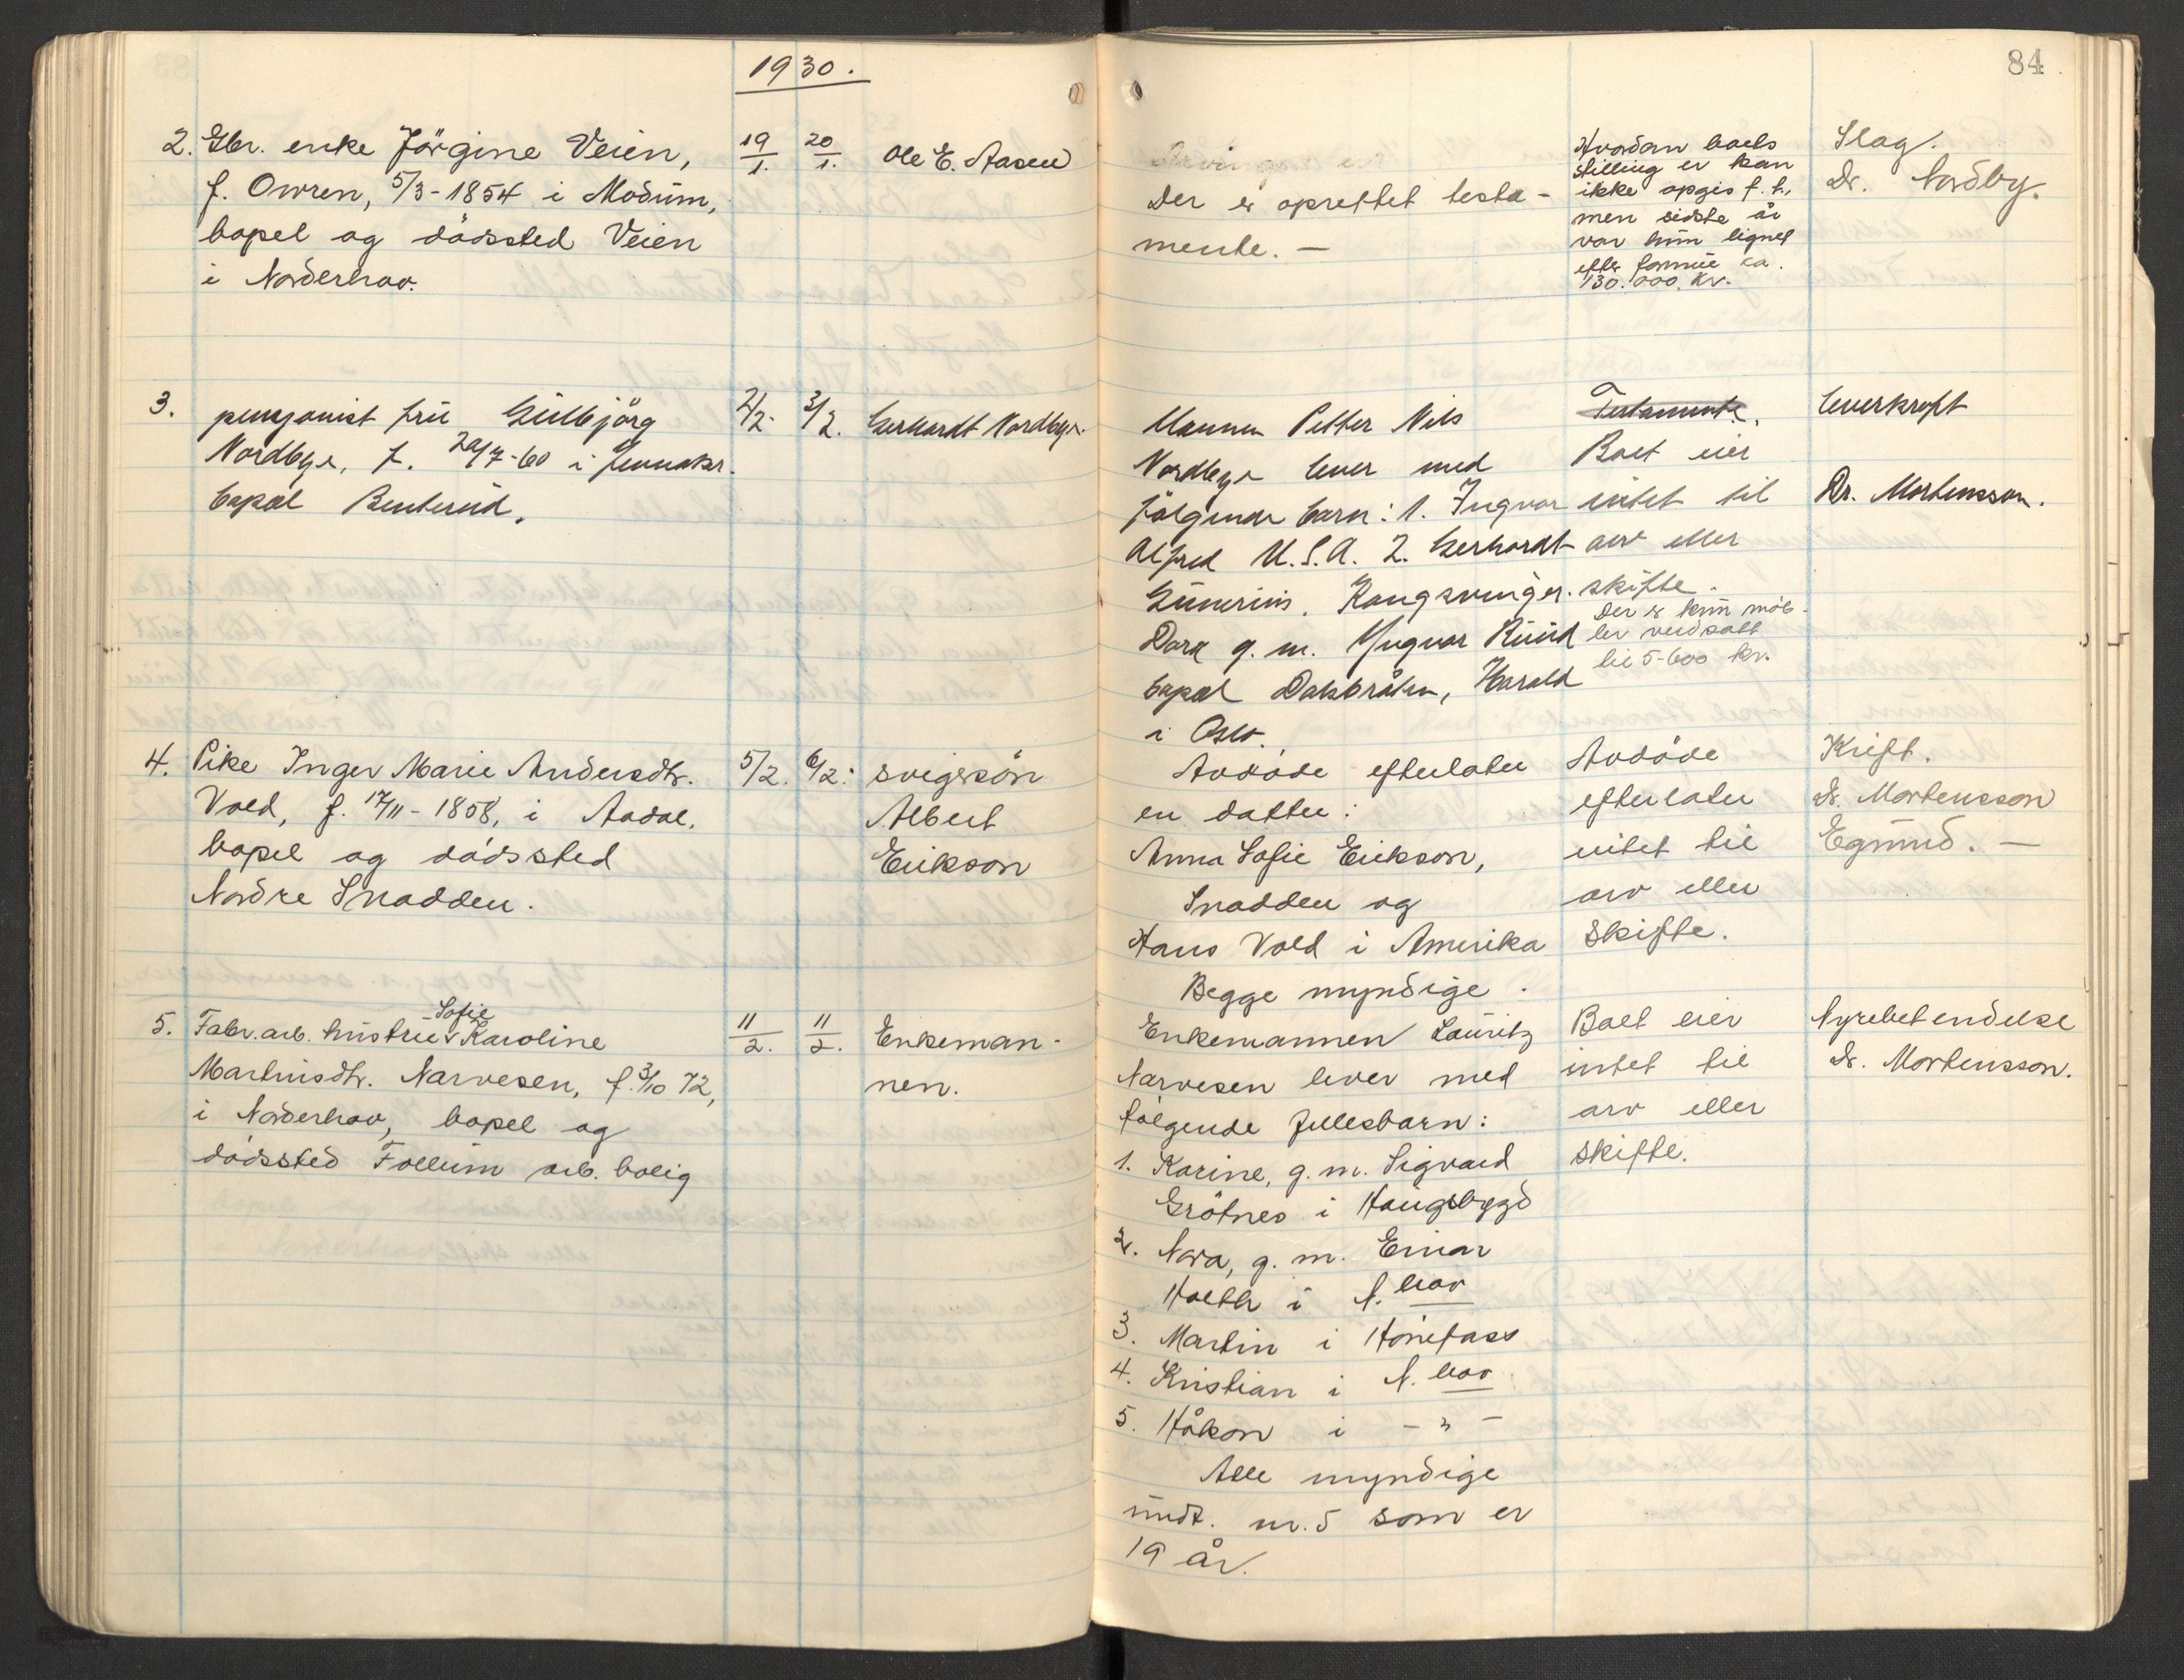 1930.
84
2. Gbr. enke Jörgine Veien,
f. Owren, 5/3-1854 i Modum,
bopel og dödssted Veien
i Norderhov.
19/1. 20/1. Ole E. Aasen
Der er oprettet testa-
mente. —
Hvordan boets
stilling er kan
ikke opgis f. t.,
men sidste år
var hun lignet
efter formue ca.
130.000 kr.
Slag.
Dr. Nordby.
3. pensjonist fru Gulbjörg
Nordbye, f. 20/7-60 i Jevnaker.
bopæl Benterud.
2/2. 3/2. Gerhardt Nordbye.
Mannen Petter Nils
Nordbye lever med
følgende barn: 1. Ingvar
Alfred U.S.A. 2. Gerhardt
Gunerius. Kongsvinger.
Dora g. m. Yngvar Ruud
bopæl Daksbråten, Harald
i Oslo.
Testamente.
Boet eier
intet til
arv eller
skifte.
Der er kun möb-
ler verdsatt
til 5-600 kr.
leverkreft
Dr. Mortensson.
4. Pike Inger Marie Andersdtr.
Vold, f. 17/11-1858, i Aadal.
bopel og dödssted
Nordre Snadden.
5/2. 6/2: svigersön
Albert
Erikson
Avdöde efterlater
en datter:
Anna Sofie Erikson,
Snadden og
Hans Vold i Amerika
Begge myndige.
Avdöde
efterlater
intet til
arv eller
skifte.
Kreft.
Dr. Mortensson
Egmund. —
5. Fabr. arb. hustru Sofie Karoline
Martinsdtr. Narvesen, f. 3/10 72,
i Norderhov, bopel og
dödssted Follum arb. bolig
11/2. 11/2. Enkeman-
nen.
Enkemannen Lauritz
Narvesen lever med
fölgende fellesbarn:
1. Karine, g. m. Sigvard
Grötnes i Haugsbygd
2. Nora, g. m. Einar
Holth i N.hov
3. Martin i Hönefoss
4. Kristian i N.hov
5. Håkon i - " -
Alle myndige
undt. nr. 5 som er
19 år.
Boet eier
intet til
arv eller
skifte.
Nyrebetendelse
Dr. Mortensson.